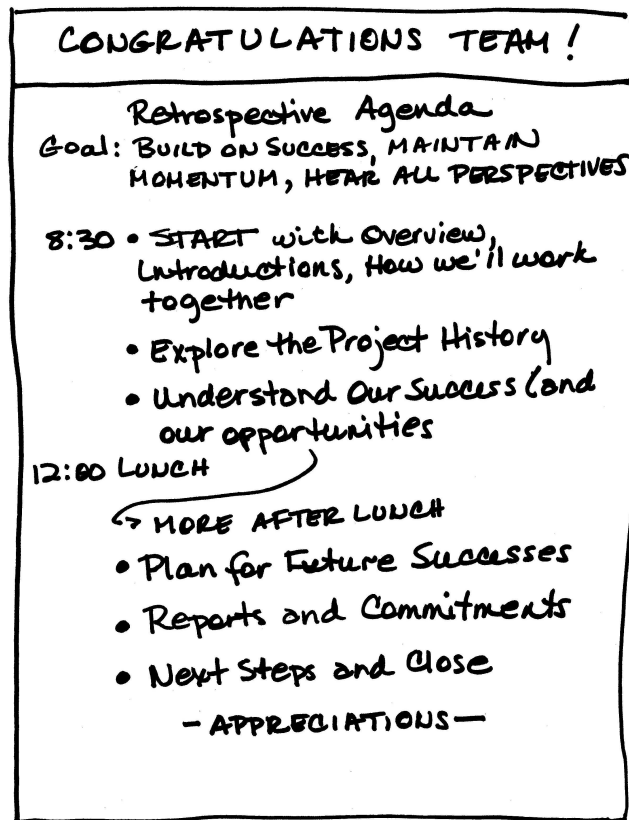 CONGRATULATIONS TEAM!
Retrospective Agenda
Goal: BUILD ON SUCCESS, MAINTAIN
MOMENTUM, HEAR ALL PERSPECTIVES
8:30 • START with Overview,
Introductions, How we'll work
together
• Explore the Project History
• Understand Our Success (and
our opportunities
12:00 LUNCH
↪ MORE AFTER LUNCH
• Plan for Future Successes
• Reports and Commitments
• Next Steps and Close
- APPRECIATIONS -